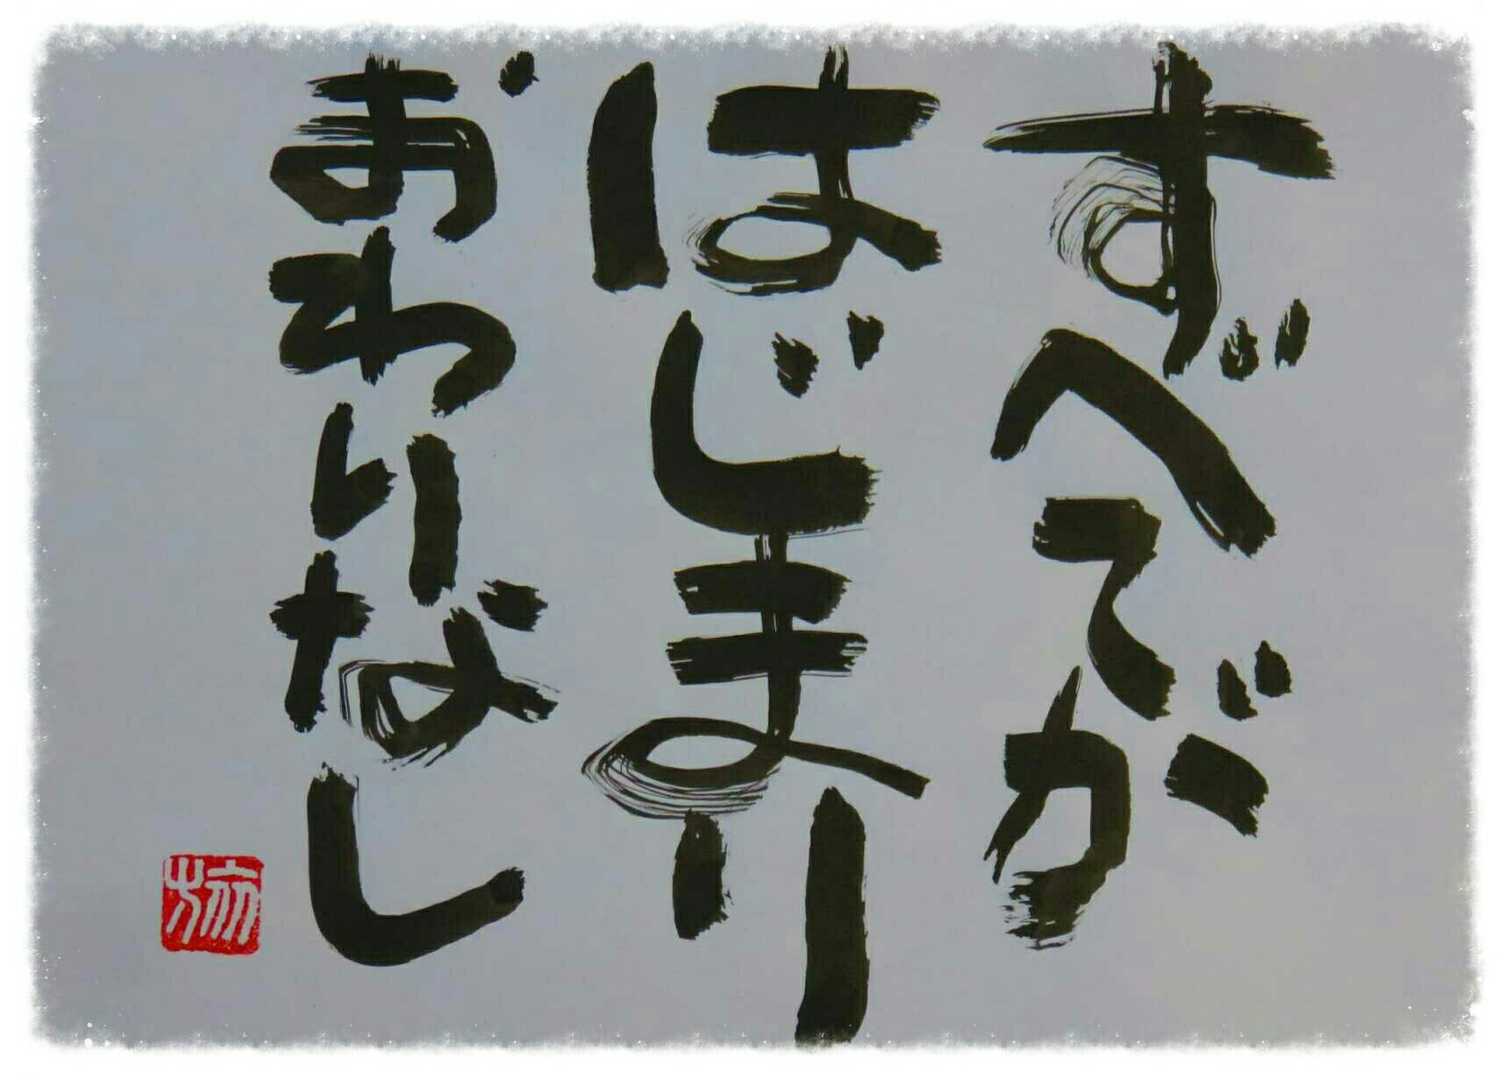 すべてが
はじまり
おわりなし